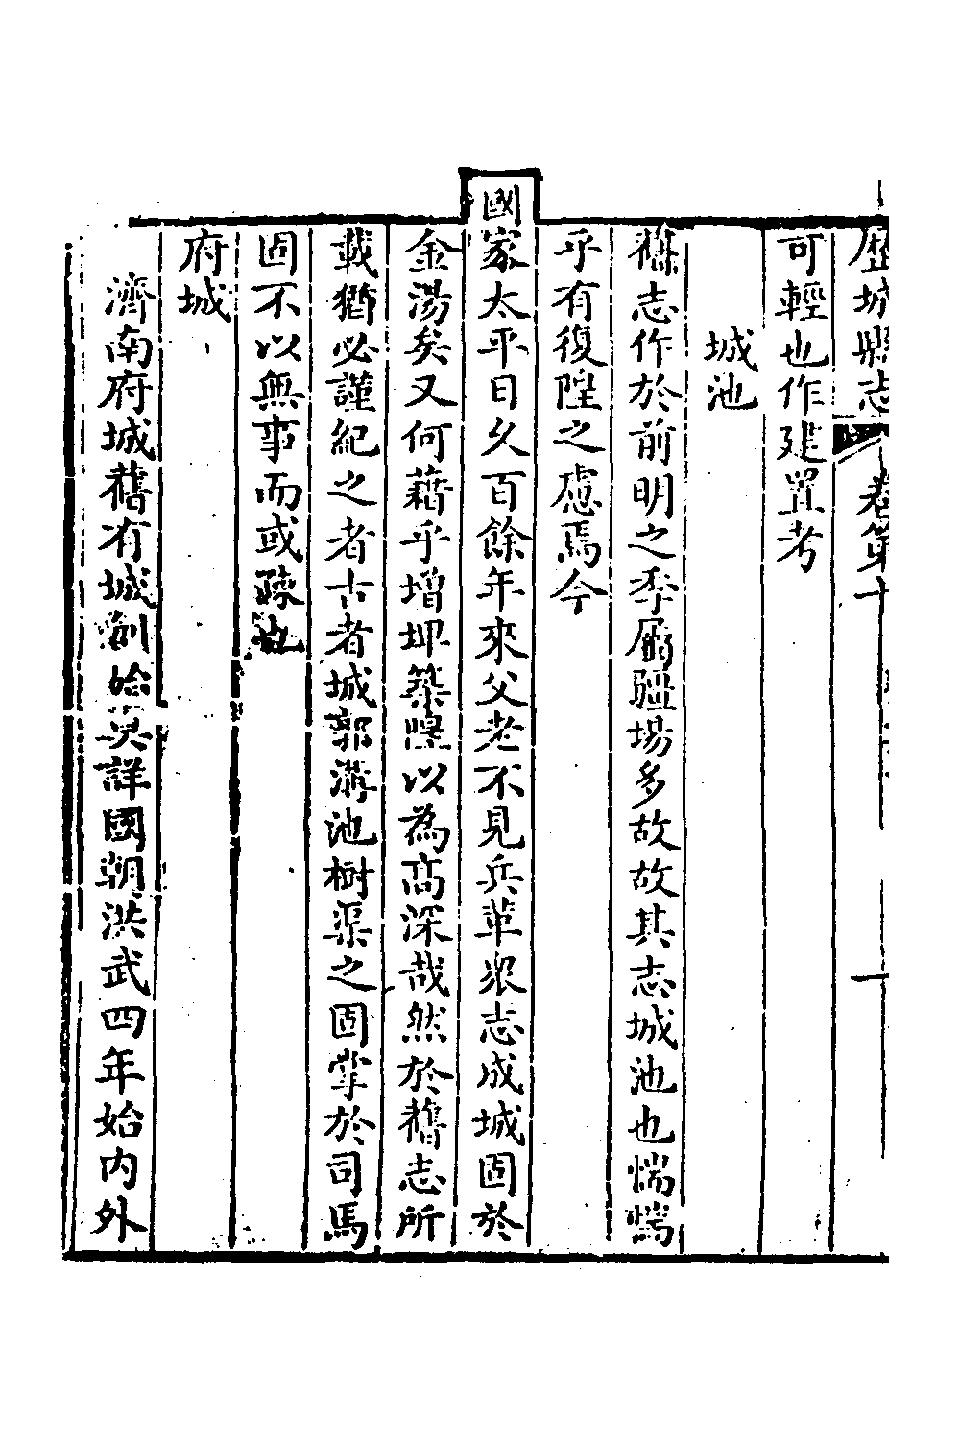 歷城縣志 卷第十 一
可輕也作建置考
城池
舊志作於前明之季屬疆場多故故其志城池也惴惴
乎有復隍之慮焉今
國家太平日久百餘年來父老不見兵革衆志成城固於
金湯矣又何藉乎增埤築隍以為高深哉然於舊志所
載猶必謹紀之者古者城郭溝池樹渠之固掌於司馬
固不以無事而或疎也
府城
濟南府城舊有城創始莫詳國朝洪武四年始内外